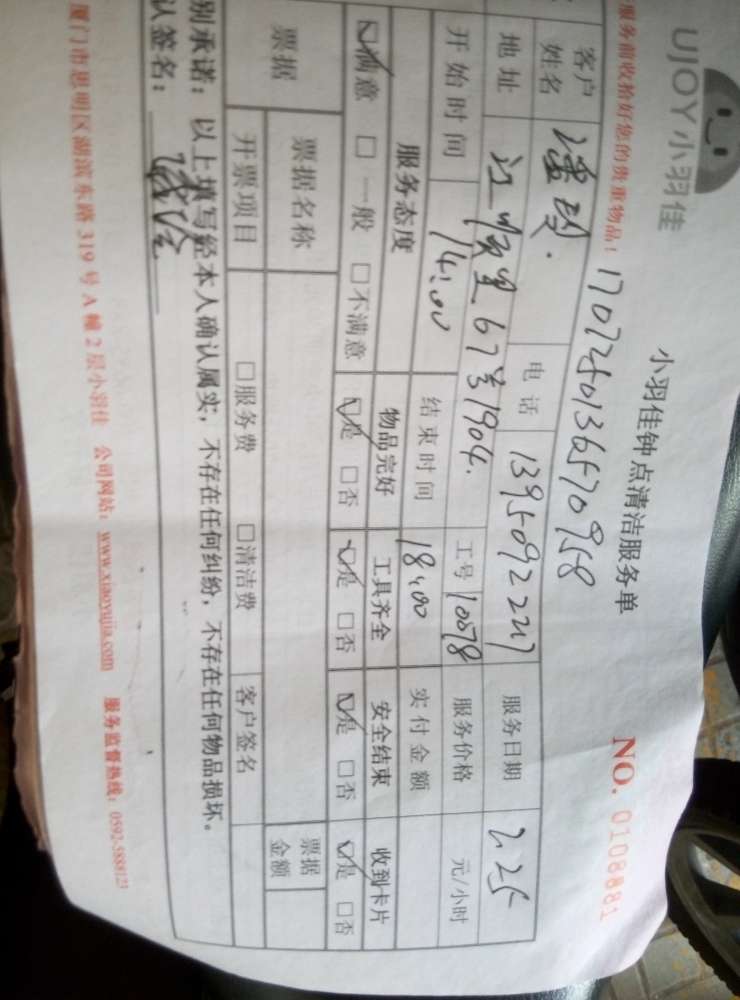 UJOY小羽佳
小羽佳钟点清洁服务单
NO. 0108881
服务前收拾好您的贵重物品! 17072501365570958
客户姓名 电话 服务日期 2.25
地址 67号1904. 工号 10078 服务价格 元/小时
开始时间 14:00 结束时间 18:00 实付金额
服务态度 物品完好 工具齐全 安全结束 收到卡片
☑满意 □一般 □不满意 ☑是 □否 ☑是 □否 ☑是 □否 ☑是 □否
票据 票据名称 票据金额
开票项目 □服务费 □清洁费 客户签名
别承诺: 以上填写经本人确认属实, 不存在任何纠纷, 不存在任何物品损坏。
认签名:
厦门市思明区湖滨东路 319 号 A 幢 2 层小羽佳 公司网站: www.xiaoyujia.com 服务监督热线: 0592-5888123